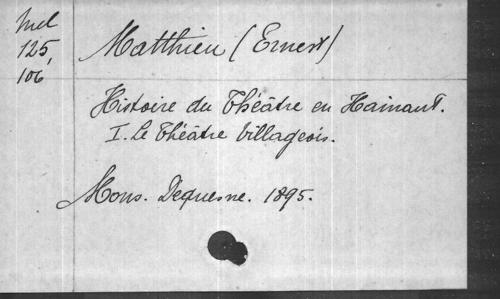 Mel
125,
106
Matthieu (Ernest)
Histoire du Théâtre en Hainaut.
I. Le Théâtre Villageois.
Mons. Dequesne. 1895.